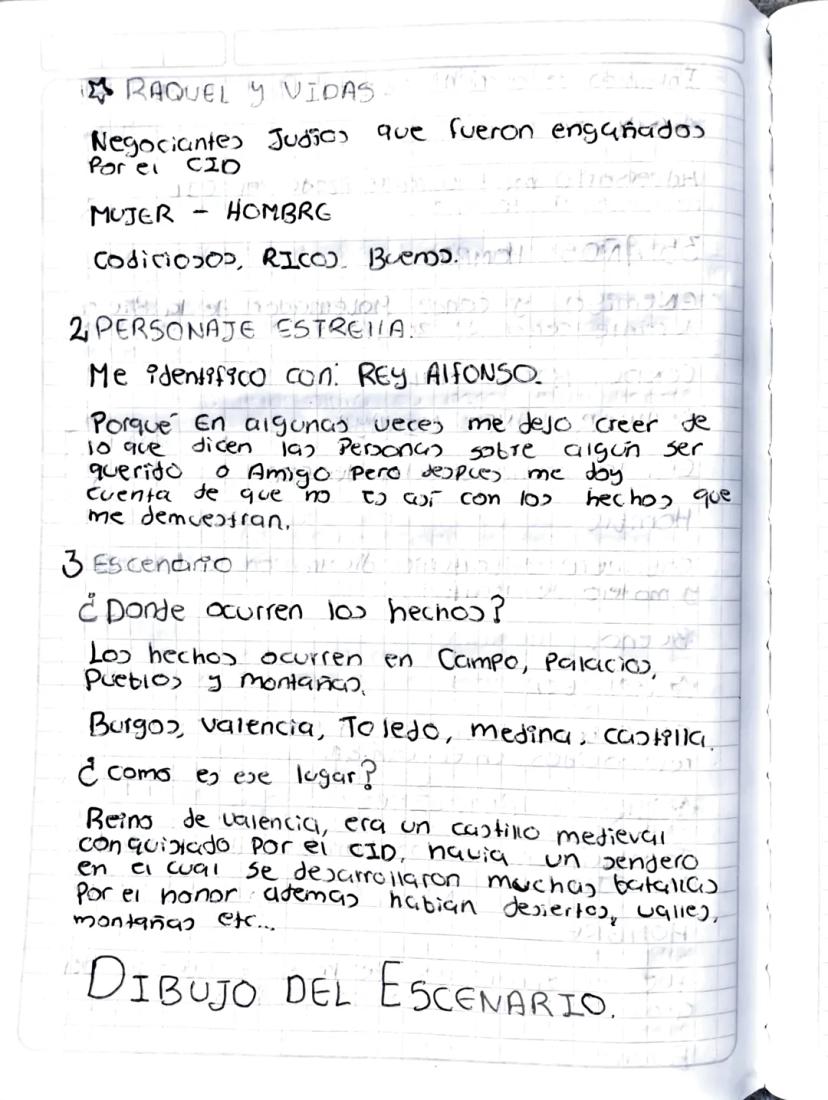 ☆ RAQUEL y VIDAS
Negociantes Judios que fueron engañados
Por el CID
MUJER - HOMBRE
Codiciosos, RICOS. Buenos.
2 PERSONAJE ESTRElla.
Me identifico con: REY AlfONSO.
Porque En algunas veces me dejo creer de
lo que dicen las Personas sobre algún ser
querido o Amigo Pero despues me doy
cuenta de que no es así con los hechos que
me demuestran.
3 Escenario
¿Donde ocurren los hechos?
Los hechos ocurren en Campo, Palacios,
Pueblos y montañas.
Burgos, Valencia, Toledo, medina, castilla.
¿como es ese lugar?
Reino de valencia, era un castillo medieval
conquistado Por el CID, havia un sendero
en el cual se desarrollaron muchas batallas
Por el honor ademas habian desiertos, valles,
montañas etc...
DIBUJO DEL ESCENARIO.